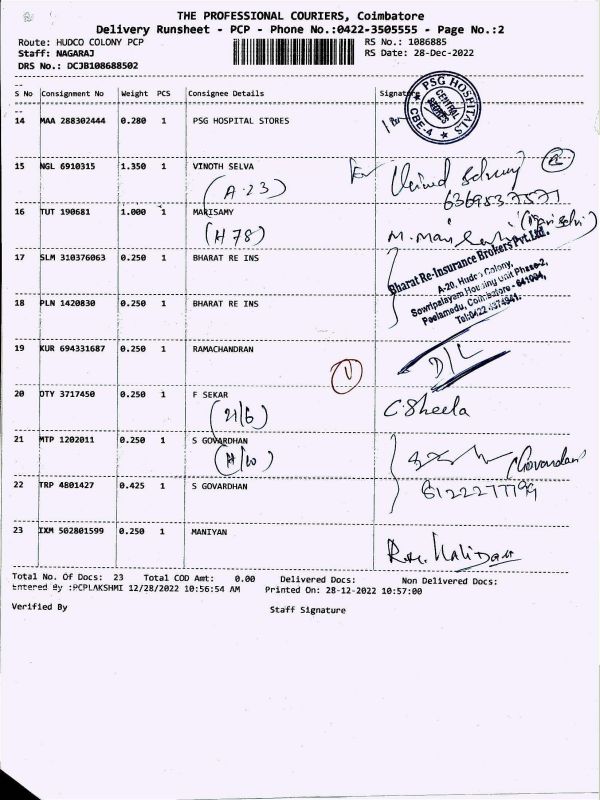 THE PROFESSIONAL COURIERS, Coimbatore
Delivery Runsheet - PCP - Phone No.:0422-3505555 - Page No.:2
Route: HUDCO COLONY PCP RS No.: 1086885
Staff: NAGARAJ RS Date: 28-Dec-2022
DRS No.: DCJB108688502
S No Consignment No Weight PCS Consignee Details Signature
PSG HOSPITALS
CENTRAL STORES
CBE-4
14 MAA 288302444 0.280 1 PSG HOSPITAL STORES
15 NGL 6910315 1.350 1 VINOTH SELVA
For
(A-23)
6369537571
16 TUT 190681 1.000 1 MARISAMY
(H78)
17 SLM 310376063 0.250 1 BHARAT RE INS
Bharat Re-Insurance Brokers Pvt.Ltd.
A-20, Hudco Colony,
Sowripalayam Housing Unit Phase-2,
Peelamedu, Coimbatore - 641004,
Tel:0422 4374941.
18 PLN 1420830 0.250 1 BHARAT RE INS
19 KUR 694331687 0.250 1 RAMACHANDRAN
D/L
20 OTY 3717450 0.250 1 F SEKAR
(21/6) C.Sheela
21 MTP 1202011 0.250 1 S GOVARDHAN
(H/10)
22 TRP 4801427 0.425 1 S GOVARDHAN
23 IXM 502801599 0.250 1 MANIYAN
Total No. Of Docs: 23 Total COD Amt: 0.00 Delivered Docs: Non Delivered Docs:
Entered By :PCPLAKSHMI 12/28/2022 10:56:54 AM Printed On: 28-12-2022 10:57:00
Verified By Staff Signature